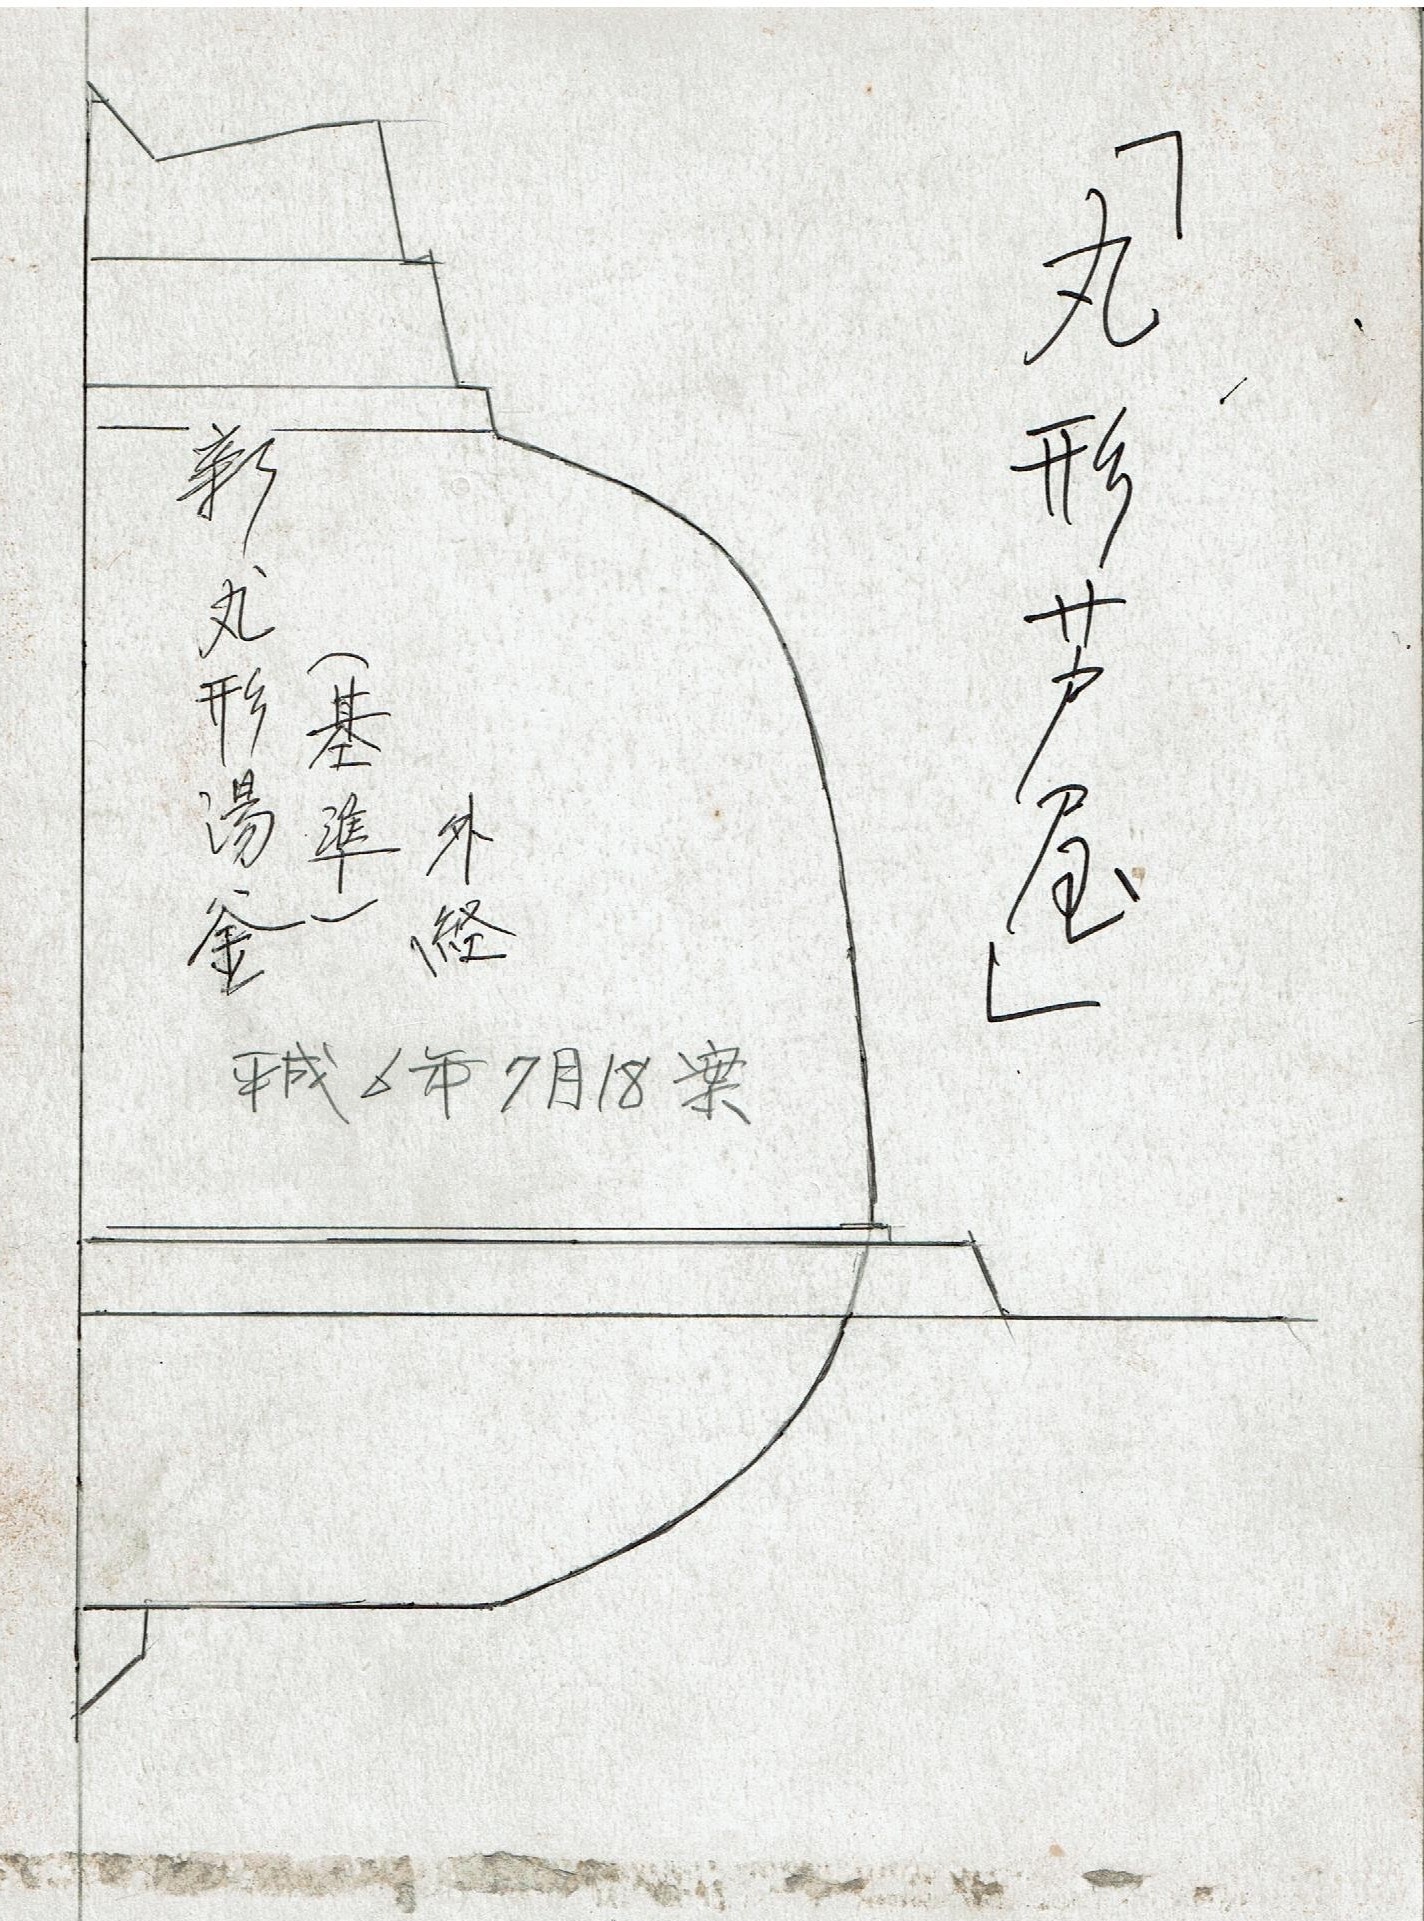 「丸形芦屋」
新丸形湯釜
(基準)
外経
平成6年7月18案